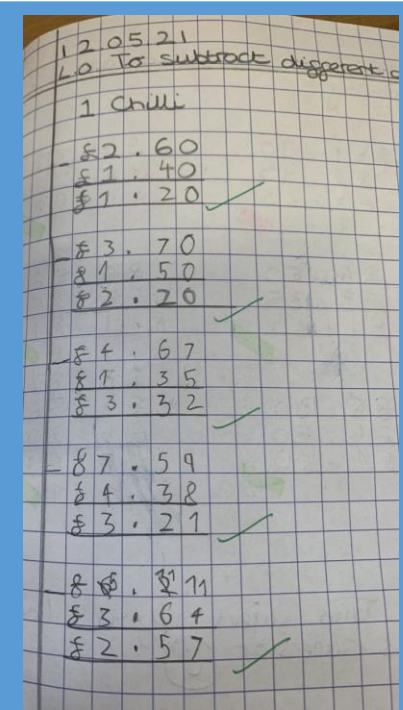 12 05 21
L.O To subtract different
1 Chilli
- £2.60
£1.40
£1.20
- £3.70
£1.50
£2.20
- £4.67
£1.35
£3.32
- £7.59
£4.38
£3.21
£3.64
£2.57